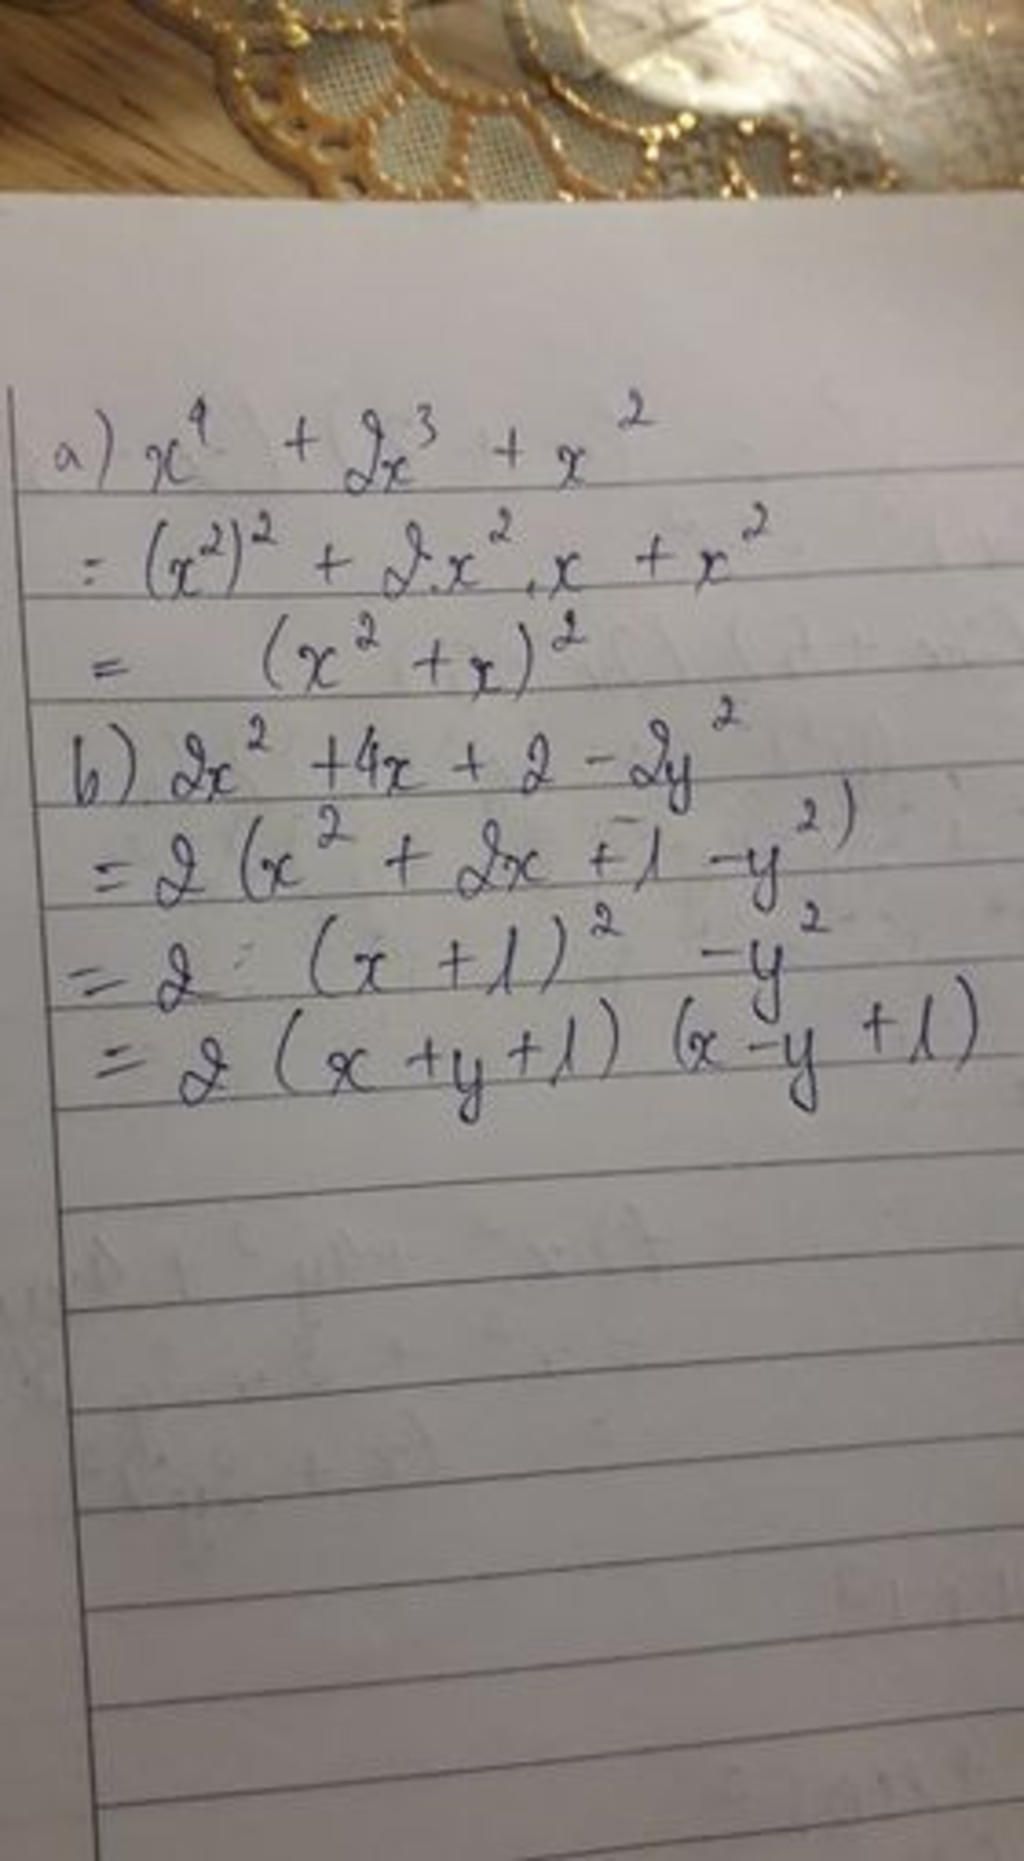 a) x⁴ + 2x³ + x²
= (x²)² + 2.x².x + x²
= (x² + x)²
b) 2x² + 4x + 2 - 2y²
= 2 (x² + 2x + 1 - y²)
= 2 (x + 1)² - y²
= 2 (x + y + 1) (x - y + 1)